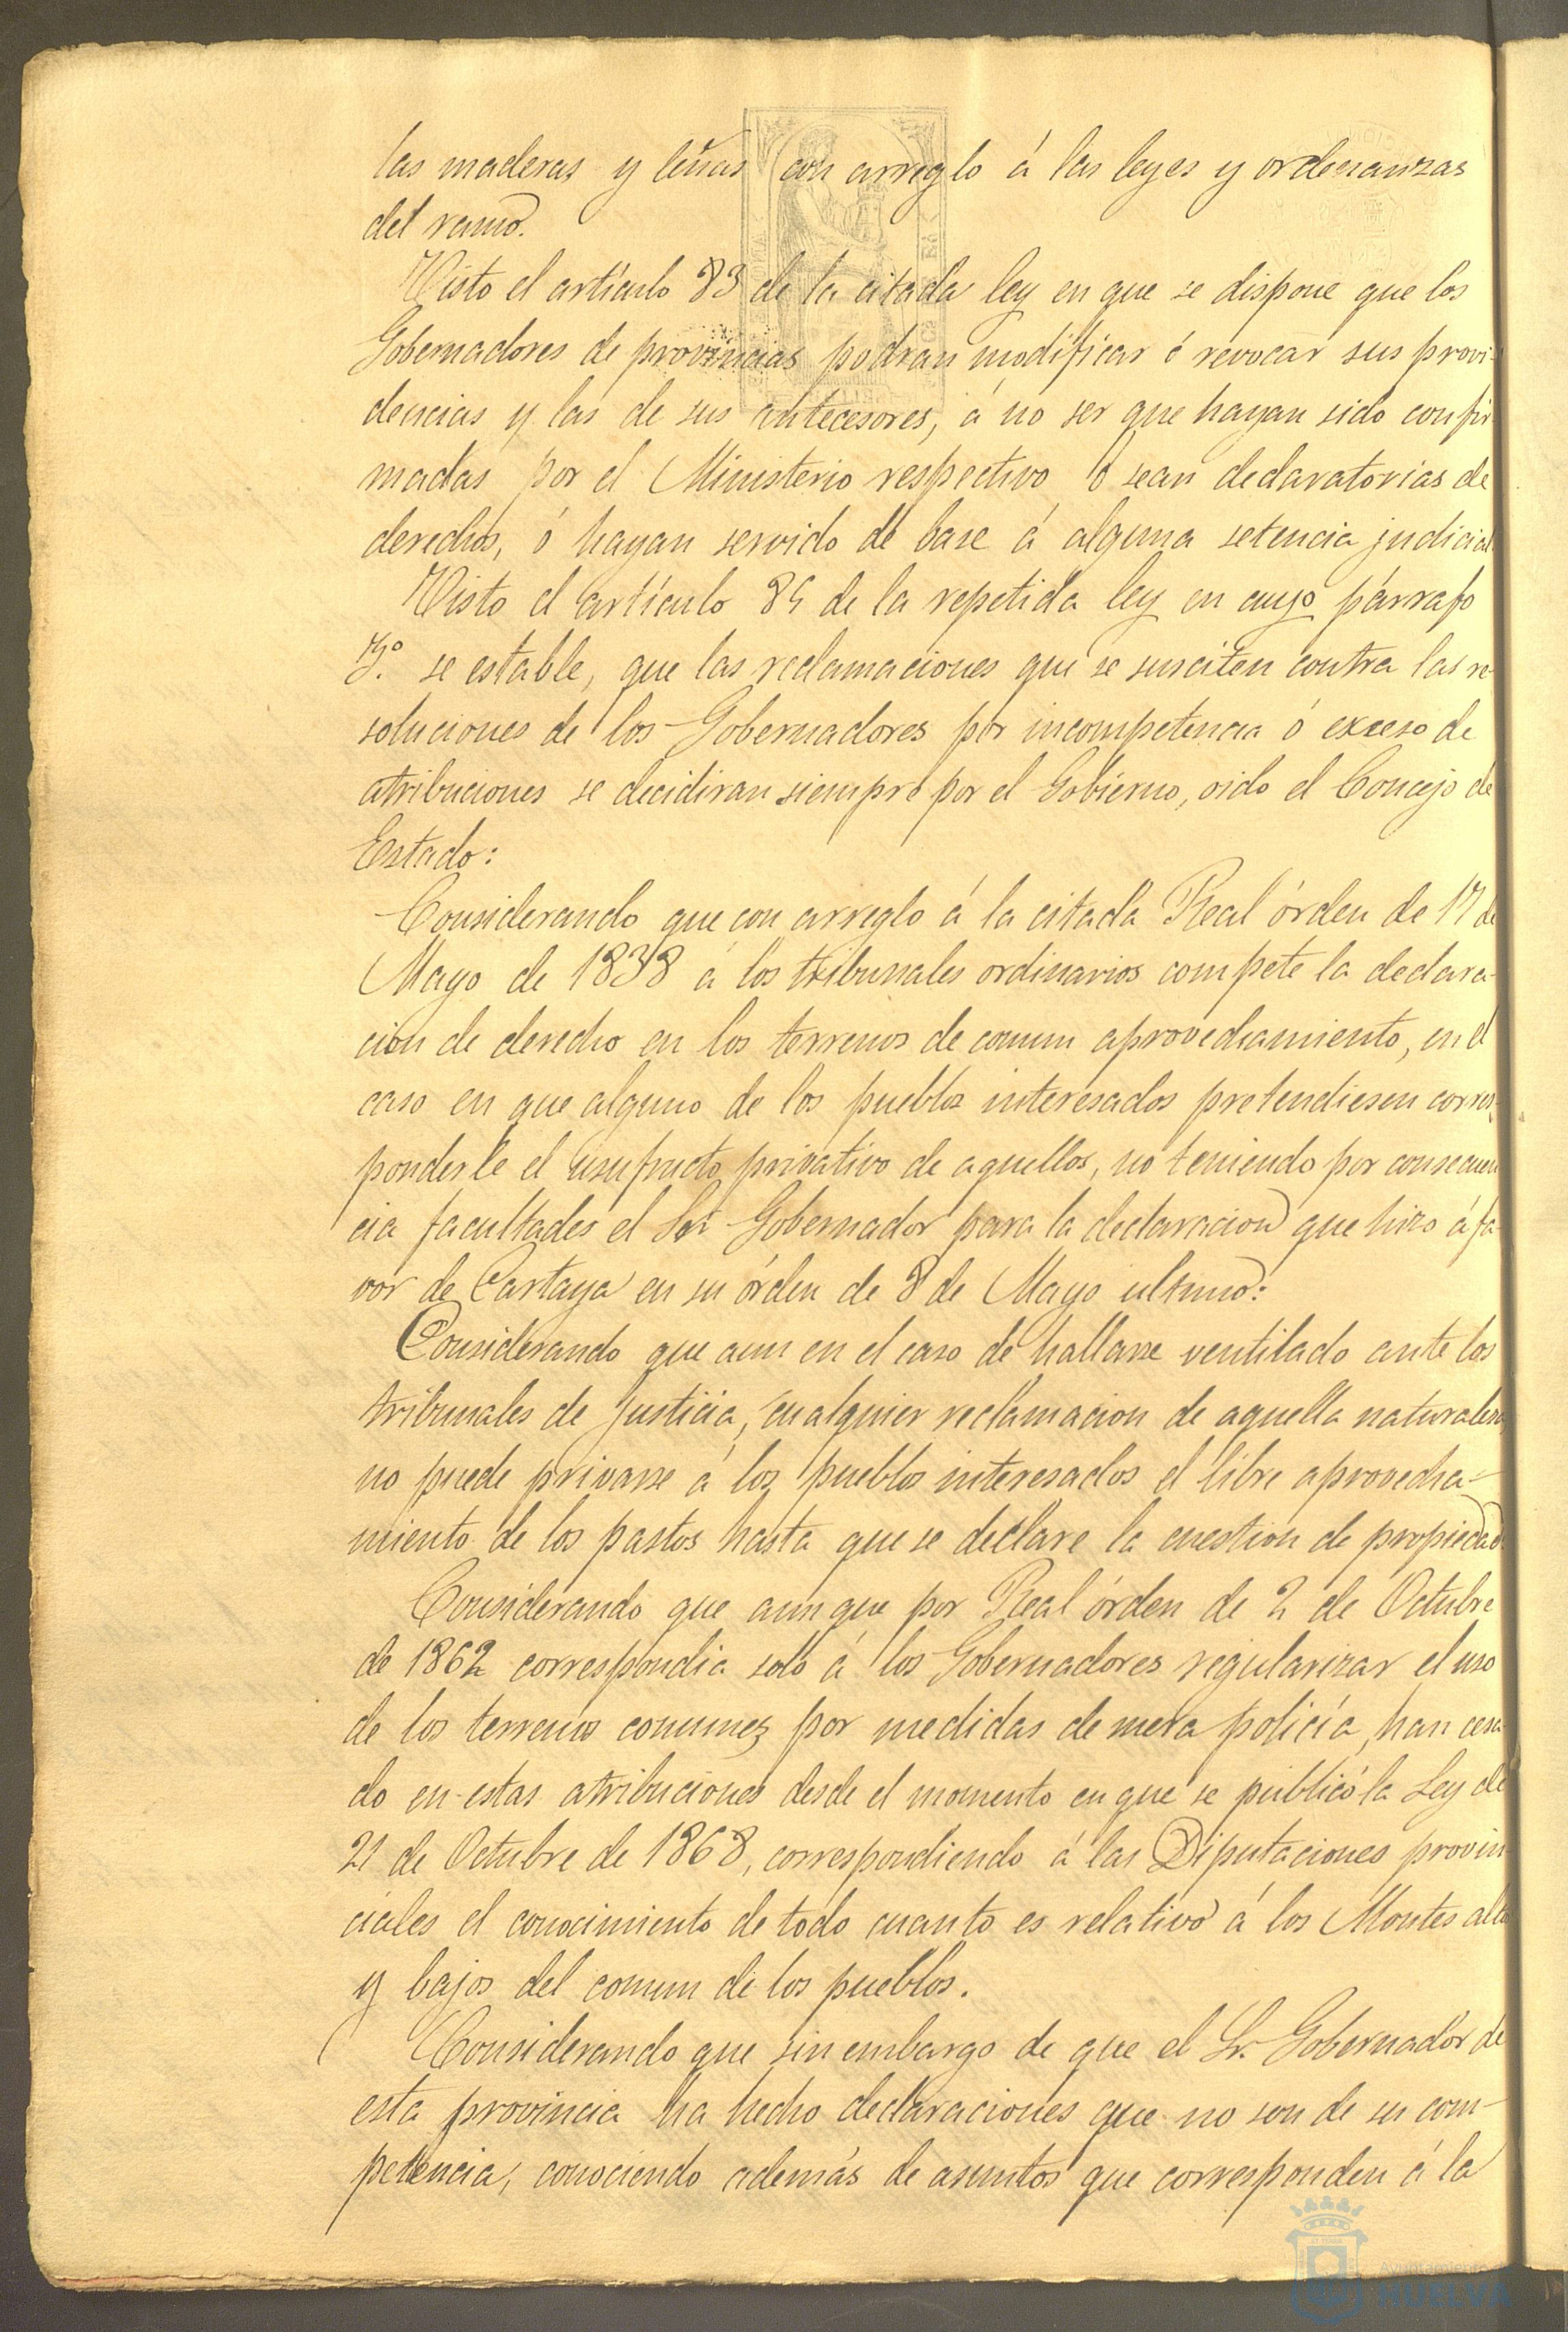 las maderas y leñas con arreglo á las leyes y ordenanzas
del ramo.
Visto el artículo 83 de la citada ley en que se dispone que los
Gobernadores de provincias podran modificar ó revocar sus provi-
dencias y las de sus antecesores, á no ser que hayan sido confir
madas por el Ministerio respectivo ó sean declaratorias de
derechos, ó hayan servido de base á alguna setencia judicial.
Visto el artículo 89 de la repetida ley en cuyo párrafo
3º. se estable, que las reclamaciones que se susciten contra las re-
soluciones de los Gobernadores por incompetencia ó exceso de
atribuciones se decidiran siempre por el Gobierno, oido el Concejo de
Estado:
Considerando que con arreglo á la citada Real órden de 17 de
Mayo de 1838 á los tribunales ordinarios compete la declara-
cion de derecho en los terrenos de comun aprovechamiento, en el
caso en que alguno de los pueblos interesados pretendiesen corres-
ponderle el usufructo privativo de aquellos, no teniendo por consecuen
cia facultades el Sor Gobernador para la declaracion que hizo á fa-
vor de Cartaya en su órden de 8 de Mayo ultimo:
Considerando que aun en el caso de hallarse ventilado ante los
tribunales de Justicia, cualquier reclamacion de aquella naturaleza,
no puede privarse á los pueblos interesados el libre aprovecha-
miento de los pastos hasta que se declare la cuestion de propiedad.
Considerando que aunque por Real órden de 2 de Octubre
de 1862 correspondia solo á los Gobernadores regularizar el uso
de los terrenos comunes por medidas de mera policía, han cesa
do en estas atribuciones desde el momento en que se publicó la Ley de
21 de Octubre de 1868, correspondiendo á las Diputaciones provin
ciales el conocimiento de todo cuanto es relativo á los Montes altos
y bajos del comun de los pueblos.
Considerando que sin embargo de que el Sr. Gobernador de
esta provincia ha hecho declaraciones que no son de su com-
petencia, conociendo además de asuntos que corresponden á la
Ayuntamiento de
HUELVA